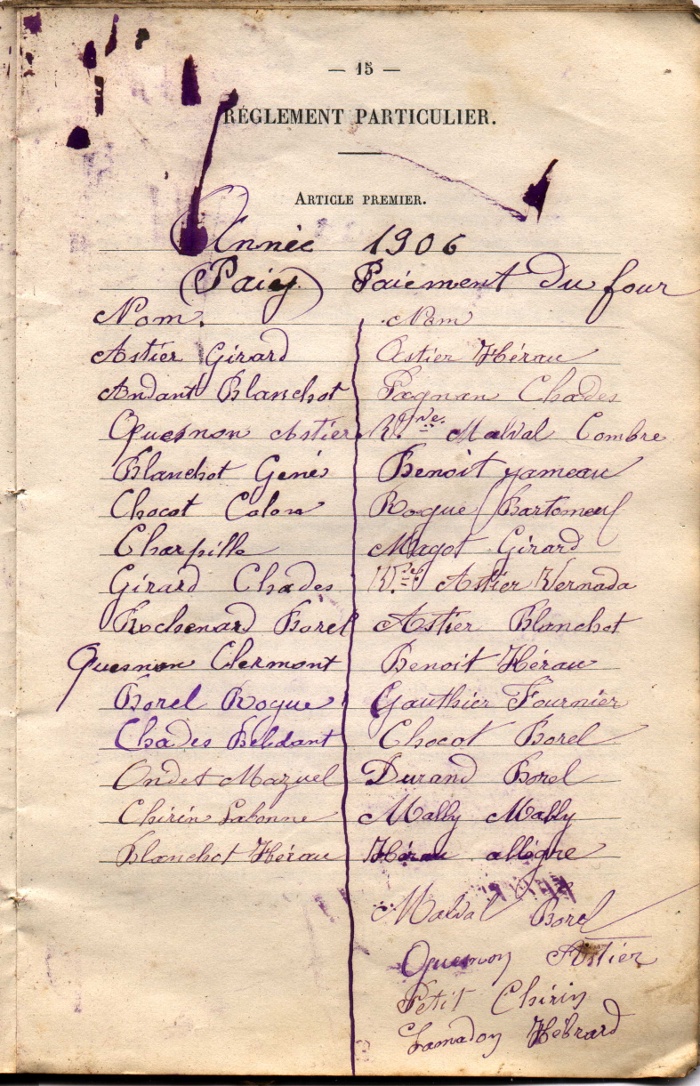 — 15 —
RÉGLEMENT PARTICULIER.
ARTICLE PREMIER.
Année 1906
(Paiy) Paiement du four
Nom.
Astier Girard
Andant Blanchot
Quesnon Astier
Blanchot Genés
Chocot Colon
Charpille
Girard Chades
Rochenard Borel
Quesnon Clermont
Borel Rogue
Chades Belidant
Ondet Mazuel
Chirin Labonne
Blanchot Hérau
Nom
Astier Hérau
Fagnan Chades
Vve Malval Combre
Benoit Jameau
Rogue Bartomeuf
Magot Girard
Astier Vernada
Astier Blanchot
Benoit Hérau
Gauthier Fournier
Chocot Borel
Durand Borel
Mally Mally
Hérau allègre
Malval Borel
Quesnon Astier
Petit Chirin
Lamadon Hébrard